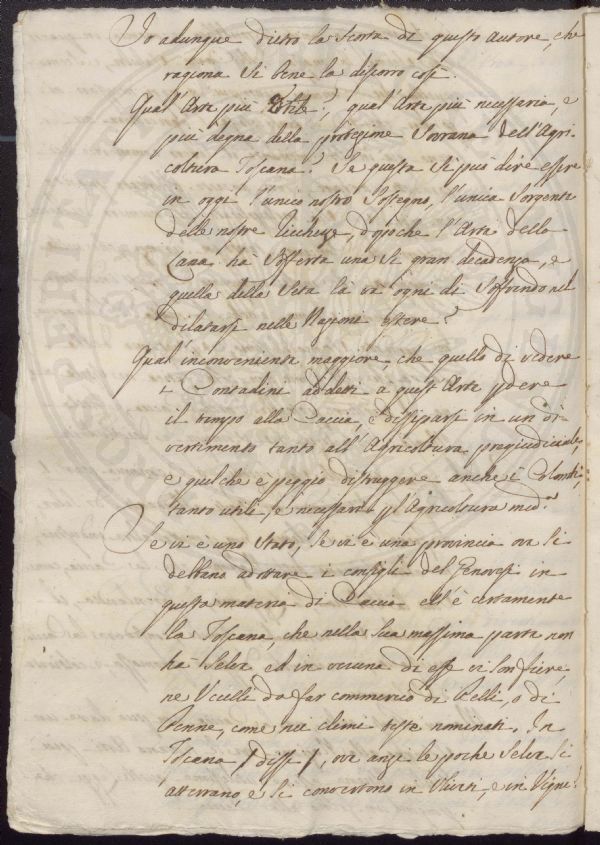 Io adunque dietro la scorta di questo autore, che
ragiona si bene la discorro così.
Qual'Arte più Utile?, qual'Arte più necessaria, e
più degna della protezione Sovrana dell'Agri-
coltura Toscana? Se questa si può dire essere
in oggi l'unico nostro Sostegno, l'unica Sorgente
delle nostre Ricchezze, dopoche l'Arte della
Lana hà Sofferta una si gran decadenza, e
quella della Seta la và ogni dì Soffrendo nel
dilatarsi nelle Nazioni estere?
Qual'inconveniente maggiore, che quello di vedere
i Contadini addetti a quest'Arte pdere
il tempo alla Caccia, e dissiparsi in un di-
vertimento tanto all'Agricoltura pregiudiciale,
e quel che è peggio distruggere anche i Colombi,
tanto utili, e necessari pl'Agricoltura med.ª
Se vi è uno Stato, se vi è una provincia ove si
debbano adottare i consigli del Genovesi in
questa materia di Caccia ell'è certamente
la Toscana, che nella sua massima parte non
hà Selve ed in veruna di esse vi son fiere,
ne Uccelli da far commercio di Pelli, o di
Penne, come nei climi teste nominati. In
Toscana /dissi/, ove anzi le poche Selve si
atterrano, e si convertono in Uliveti, e in Vigne!